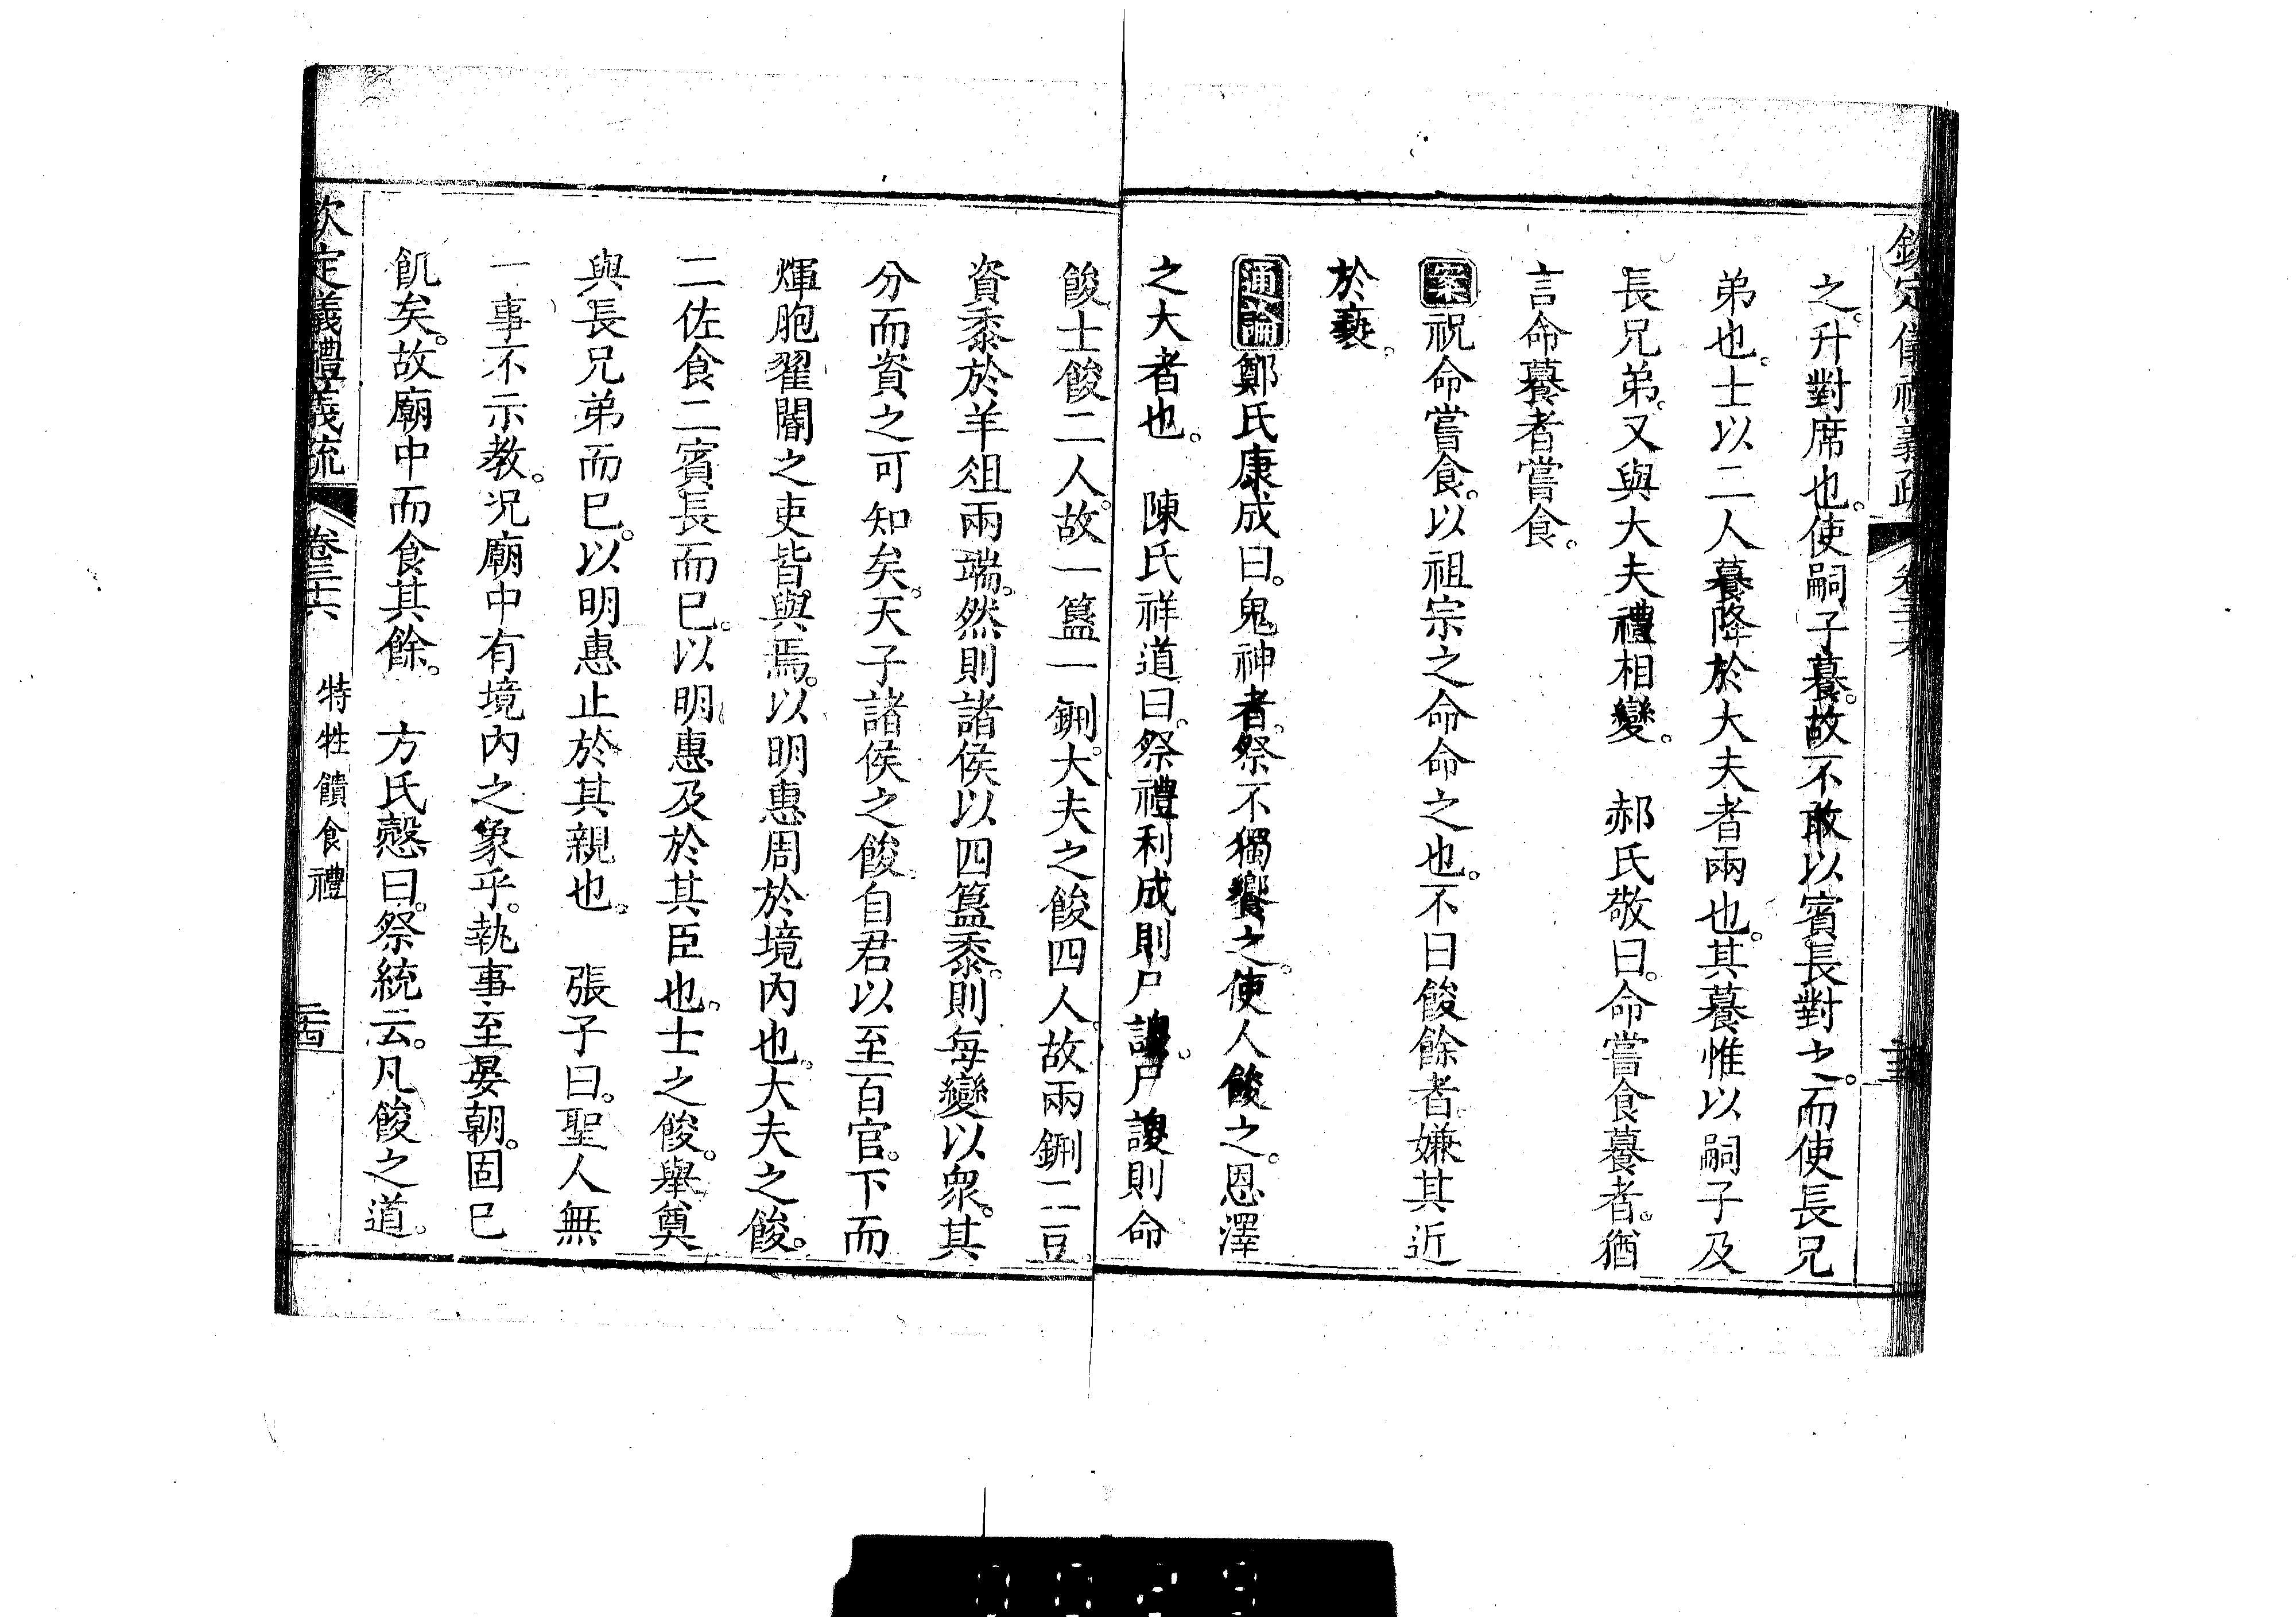 欽定儀禮義疏 卷三十六
之。升對席也。使嗣子䬸。故不敢以賓長對之。而使長兄
弟也。士以二人䬸降於大夫者兩也。其䬸惟以嗣子及
長兄弟。又與大夫禮相變。 郝氏敬曰。命嘗食䬸者。猶
言命䬸者嘗食。
案祝命嘗食。以祖宗之命命之也。不曰餕餘者。嫌其近
於褻。
通論鄭氏康成曰。鬼神者。祭不獨饗之。使人餕之。恩澤
之大者也。 陳氏祥道曰。祭禮利成則尸謖。尸謖則命
餕。士餕二人。故一簋一鉶。大夫之餕四人。故兩鉶二豆。
資黍於羊俎兩端。然則諸侯以四簋黍。則每變以衆。其
分而資之可知矣。天子諸侯之餕。自君以至百官。下而
煇胞翟閽之吏皆與焉。以明惠周於境內也。大夫之餕。
二佐食二賓長而已。以明惠及於其臣也。士之餕。舉奠
與長兄弟而已。以明惠止於其親也。 張子曰。聖人無
一事不示教。況廟中有境內之象乎。執事至晏朝。固已
飢矣。故廟中而食其餘。 方氏慤曰。祭統云。凡餕之道。
欽定儀禮義疏 卷三十六 特牲饋食禮 二十四